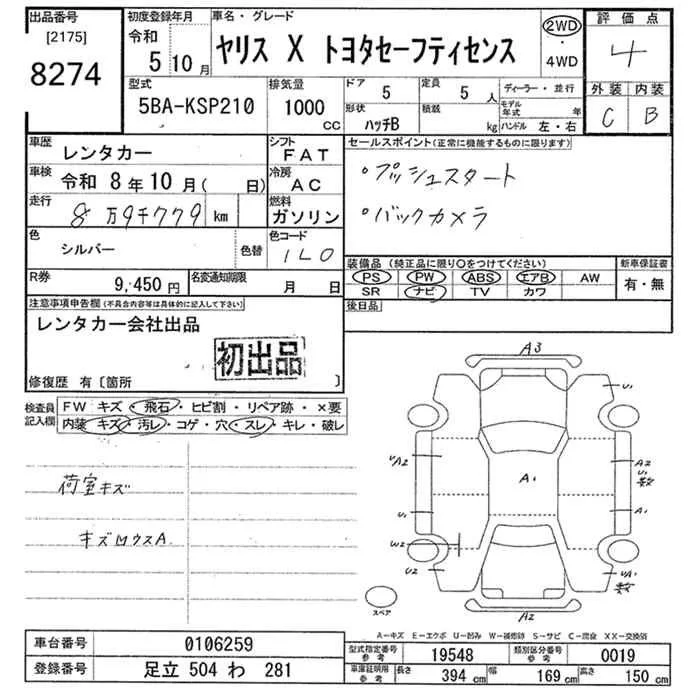 出品番号
[2175]
8274
初度登録年月
令和
5 10月
車名・グレード
ヤリス X トヨタセーフティセンス
2WD
・
4WD
評価点
4
外装 内装
C B
型式
5BA-KSP210
排気量
1000
CC
ドア
5
定員
5 人
形状
ハッチB
積載
kg
ディーラー・並行
モデル年式 年
ハンドル 左・右
車歴
レンタカー
シフト
FAT
車検 令和 8年10月( 日)
冷房
AC
走行
8万9千779 km
燃料
ガソリン
色
シルバー
色替
色コード
1L0
セールスポイント(正常に機能するものに限ります)
・プッシュスタート
・バックカメラ
R券
9,450円
名変通知期限
月 日
装備品 (純正品に限り○をつけてください)
PS PW ABS エアB AW
SR ナビ TV カワ
新車保証書
有・無
後日品
注意事項申告欄(不具合内容等は具体的に記入して下さい)
レンタカー会社出品
初出品
修復歴 有〔箇所 〕
検査員
記入欄
FW キズ・飛石・ヒビ割・リペア跡・×要
内装 キズ・汚レ・コゲ・穴・スレ・キレ・破レ
荷室キズ
キズ凹ウスA
A3
U1
UA2
A1
A2
U1
数
U1
A1
W2
U2
UA1
数
A2
スペア
A-キズ E-エクボ U-凹み W-補修跡 S-サビ C-腐食 XX-交換済
車台番号
0106259
登録番号
足立 504 わ 281
型式指定番号
参考
19548
類別区分番号
参考
0019
車庫証明用
参考
長さ
394 cm
幅
169 cm
高さ
150 cm